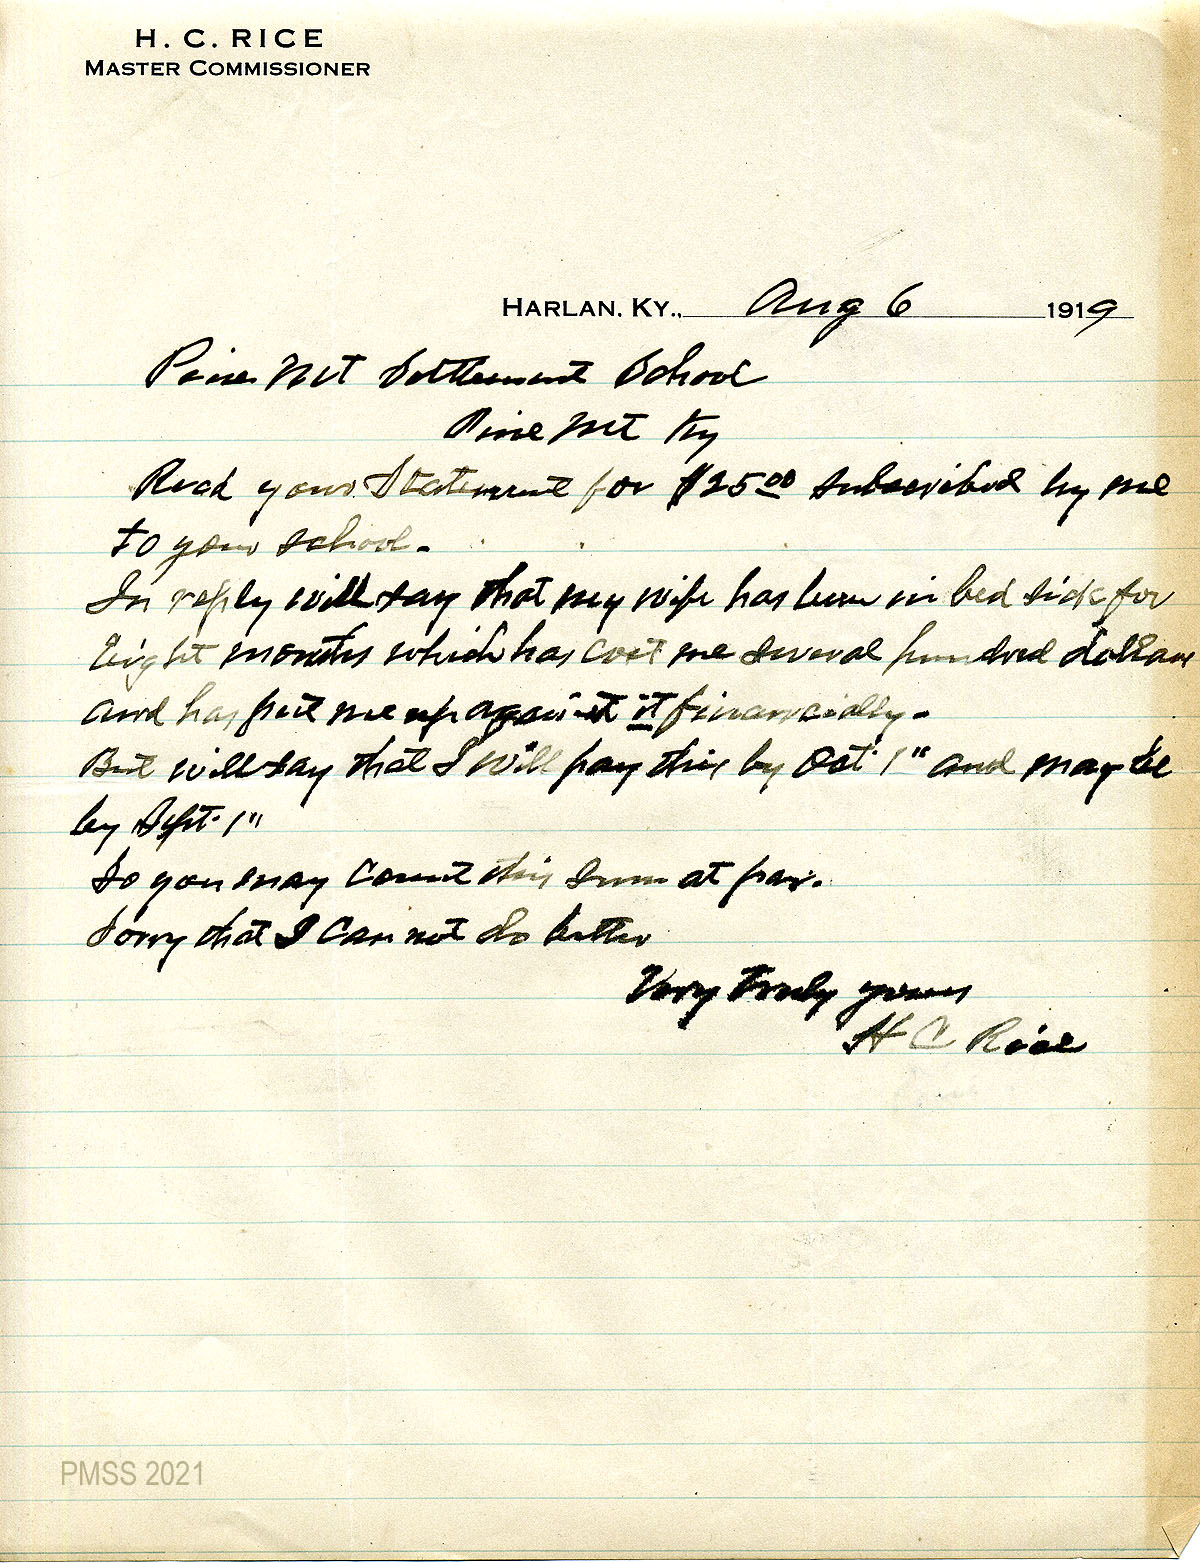 H. C. RICE
MASTER COMMISSIONER
HARLAN, KY., Aug 6 1919
Pine Mt Settlement School
Pine Mt Ky
Read your Statement for $25.00 subscribed by me
to your school.
In reply will say that my wife has been in bed sick for
Eight months which has cost me several hundred dollars
and has put me up against it financially.
But will say that I will pay this by Oct 1" and may be
by Sept. 1"
So you may count this sum at par.
Sorry that I can not do better
Very truly yours
H C Rice
PMSS 2021